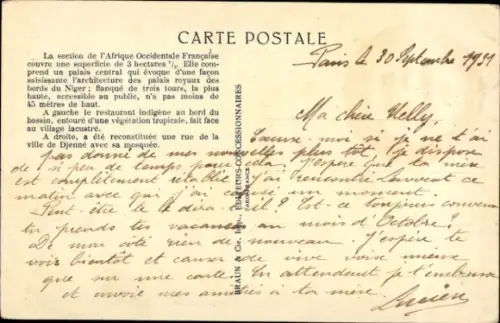 CARTE POSTALE
La section de l'Afrique Occidentale Française
couvre une superficie de 3 hectares ½. Elle com-
prend un palais central qui évoque d'une façon
saisissante l'architecture des palais royaux des
bords du Niger ; flanqué de trois tours, la plus
haute, accessible au public, n'a pas moins de
45 mètres de haut.
A gauche le restaurant indigène au bord du
bassin, entouré d'une végétation tropicale, fait face
au village lacustre.
A droite, a été reconstituée une rue de la
ville de Djenné avec sa mosquée.
BRAUN & Cie, Imp., ÉDITEURS-CONCESSIONNAIRES
Paris le 30 Septembre 1931
Ma chère Nelly,
Excuse moi si je ne t'ai
pas donné de mes nouvelles plus tôt, je dispose
de si peu de temps pour cela. J'espère que ta mère
est complètement rétablie. J'ai rencontré ce
matin avec qui j'ai causé un moment.
Peut être te l'a dira-t-il ? Est ce toujours convenu
tu prends tes vacances au mois d'Octobre ?
De mon côté rien de nouveau. J'espère te
voir bientôt et causer de vive voix mieux
que sur une carte. En attendant je t'embrasse
et envoie mes amitiés à ta mère.
Lucien